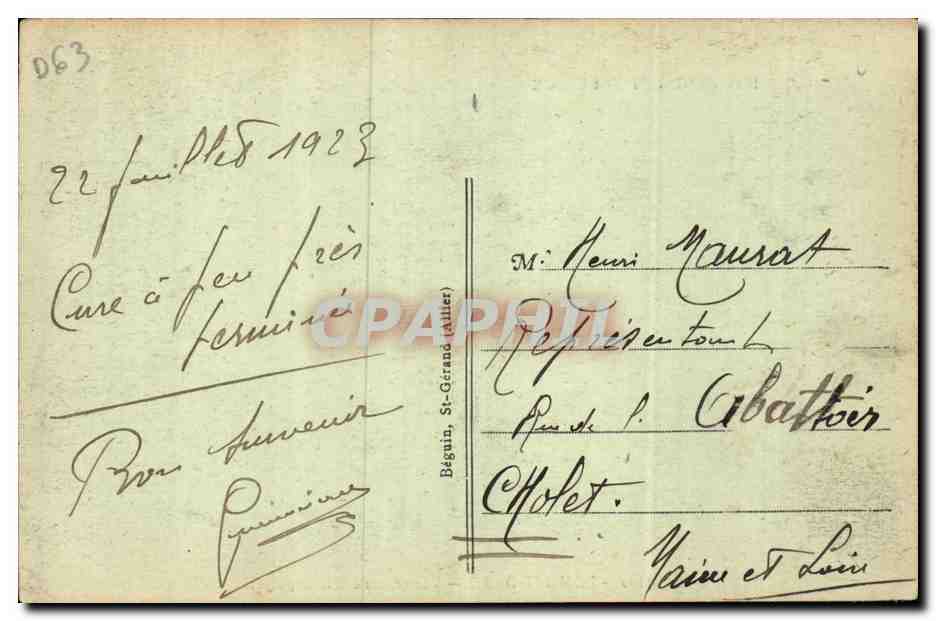 D63
22 juillet 1923
Cure à peu près
terminée
Bon Souvenir
Béguin, St-Gérand (Allier)
Mr. Henri Maurat
Représentant
Rue de l'Abattoir
CHolet.
Maine et Loire
CPAPHIL